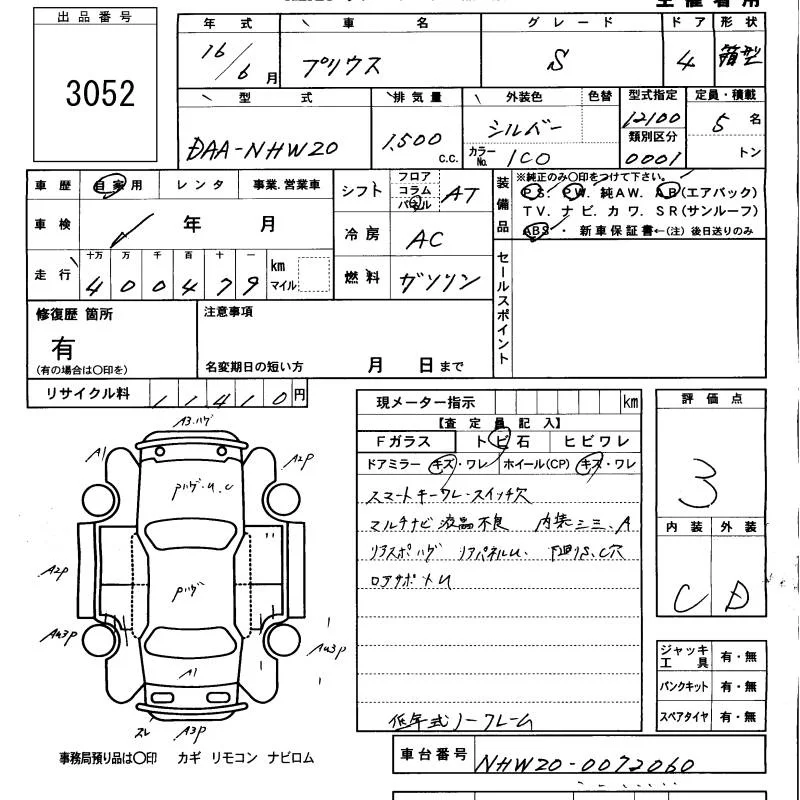 主催者用
出品番号
3052
年式 車名 グレード ドア 形状
16/6月 プリウス S 4 箱型
型式 排気量 外装色 色替 型式指定 定員・積載
DAA-NHW20 1,500 C.C. シルバー 12100 5名
カラーNo. 1C0 類別区分 0001 トン
車歴 自家用 レンタ 事業.営業車
車検 年 月
走行 十万 万 千 百 十 一 km マイル
400479
シフト フロア コラム パネル AT
冷房 AC
燃料 ガソリン
装備品
※純正のみ〇印をつけて下さい。
PS. PW. 純AW. AB(エアバック)
TV. ナビ. カワ. SR(サンルーフ)
ABS・ 新車保証書←(注) 後日送りのみ
セールスポイント
修復歴 箇所
有
(有の場合は〇印を)
注意事項
名変期日の短い方 月 日まで
リサイクル料 11410円
現メーター指示 km
【査定員記入】
Fガラス トビ石 ヒビワレ
ドアミラー キズ・ワレ ホイール(CP) キズ・ワレ
スマートキーワレ・スイッチ穴
マルチナビ液晶不良 内装シミ、A
リアスポハゲ リアパネルU、 下回りS、C穴
ロアサポートU
低年式ノークレーム
評価点
3
内装 外装
C D
ジャッキ工具 有・無
パンクキット 有・無
スペアタイヤ 有・無
A3.ハゲ
A1 A2P
Pハゲ.U.C
A2P
Pハゲ
AU3P AU3P
A1
スレ A3P
事務局預り品は〇印 カギ リモコン ナビロム
車台番号 NHW20-0072060